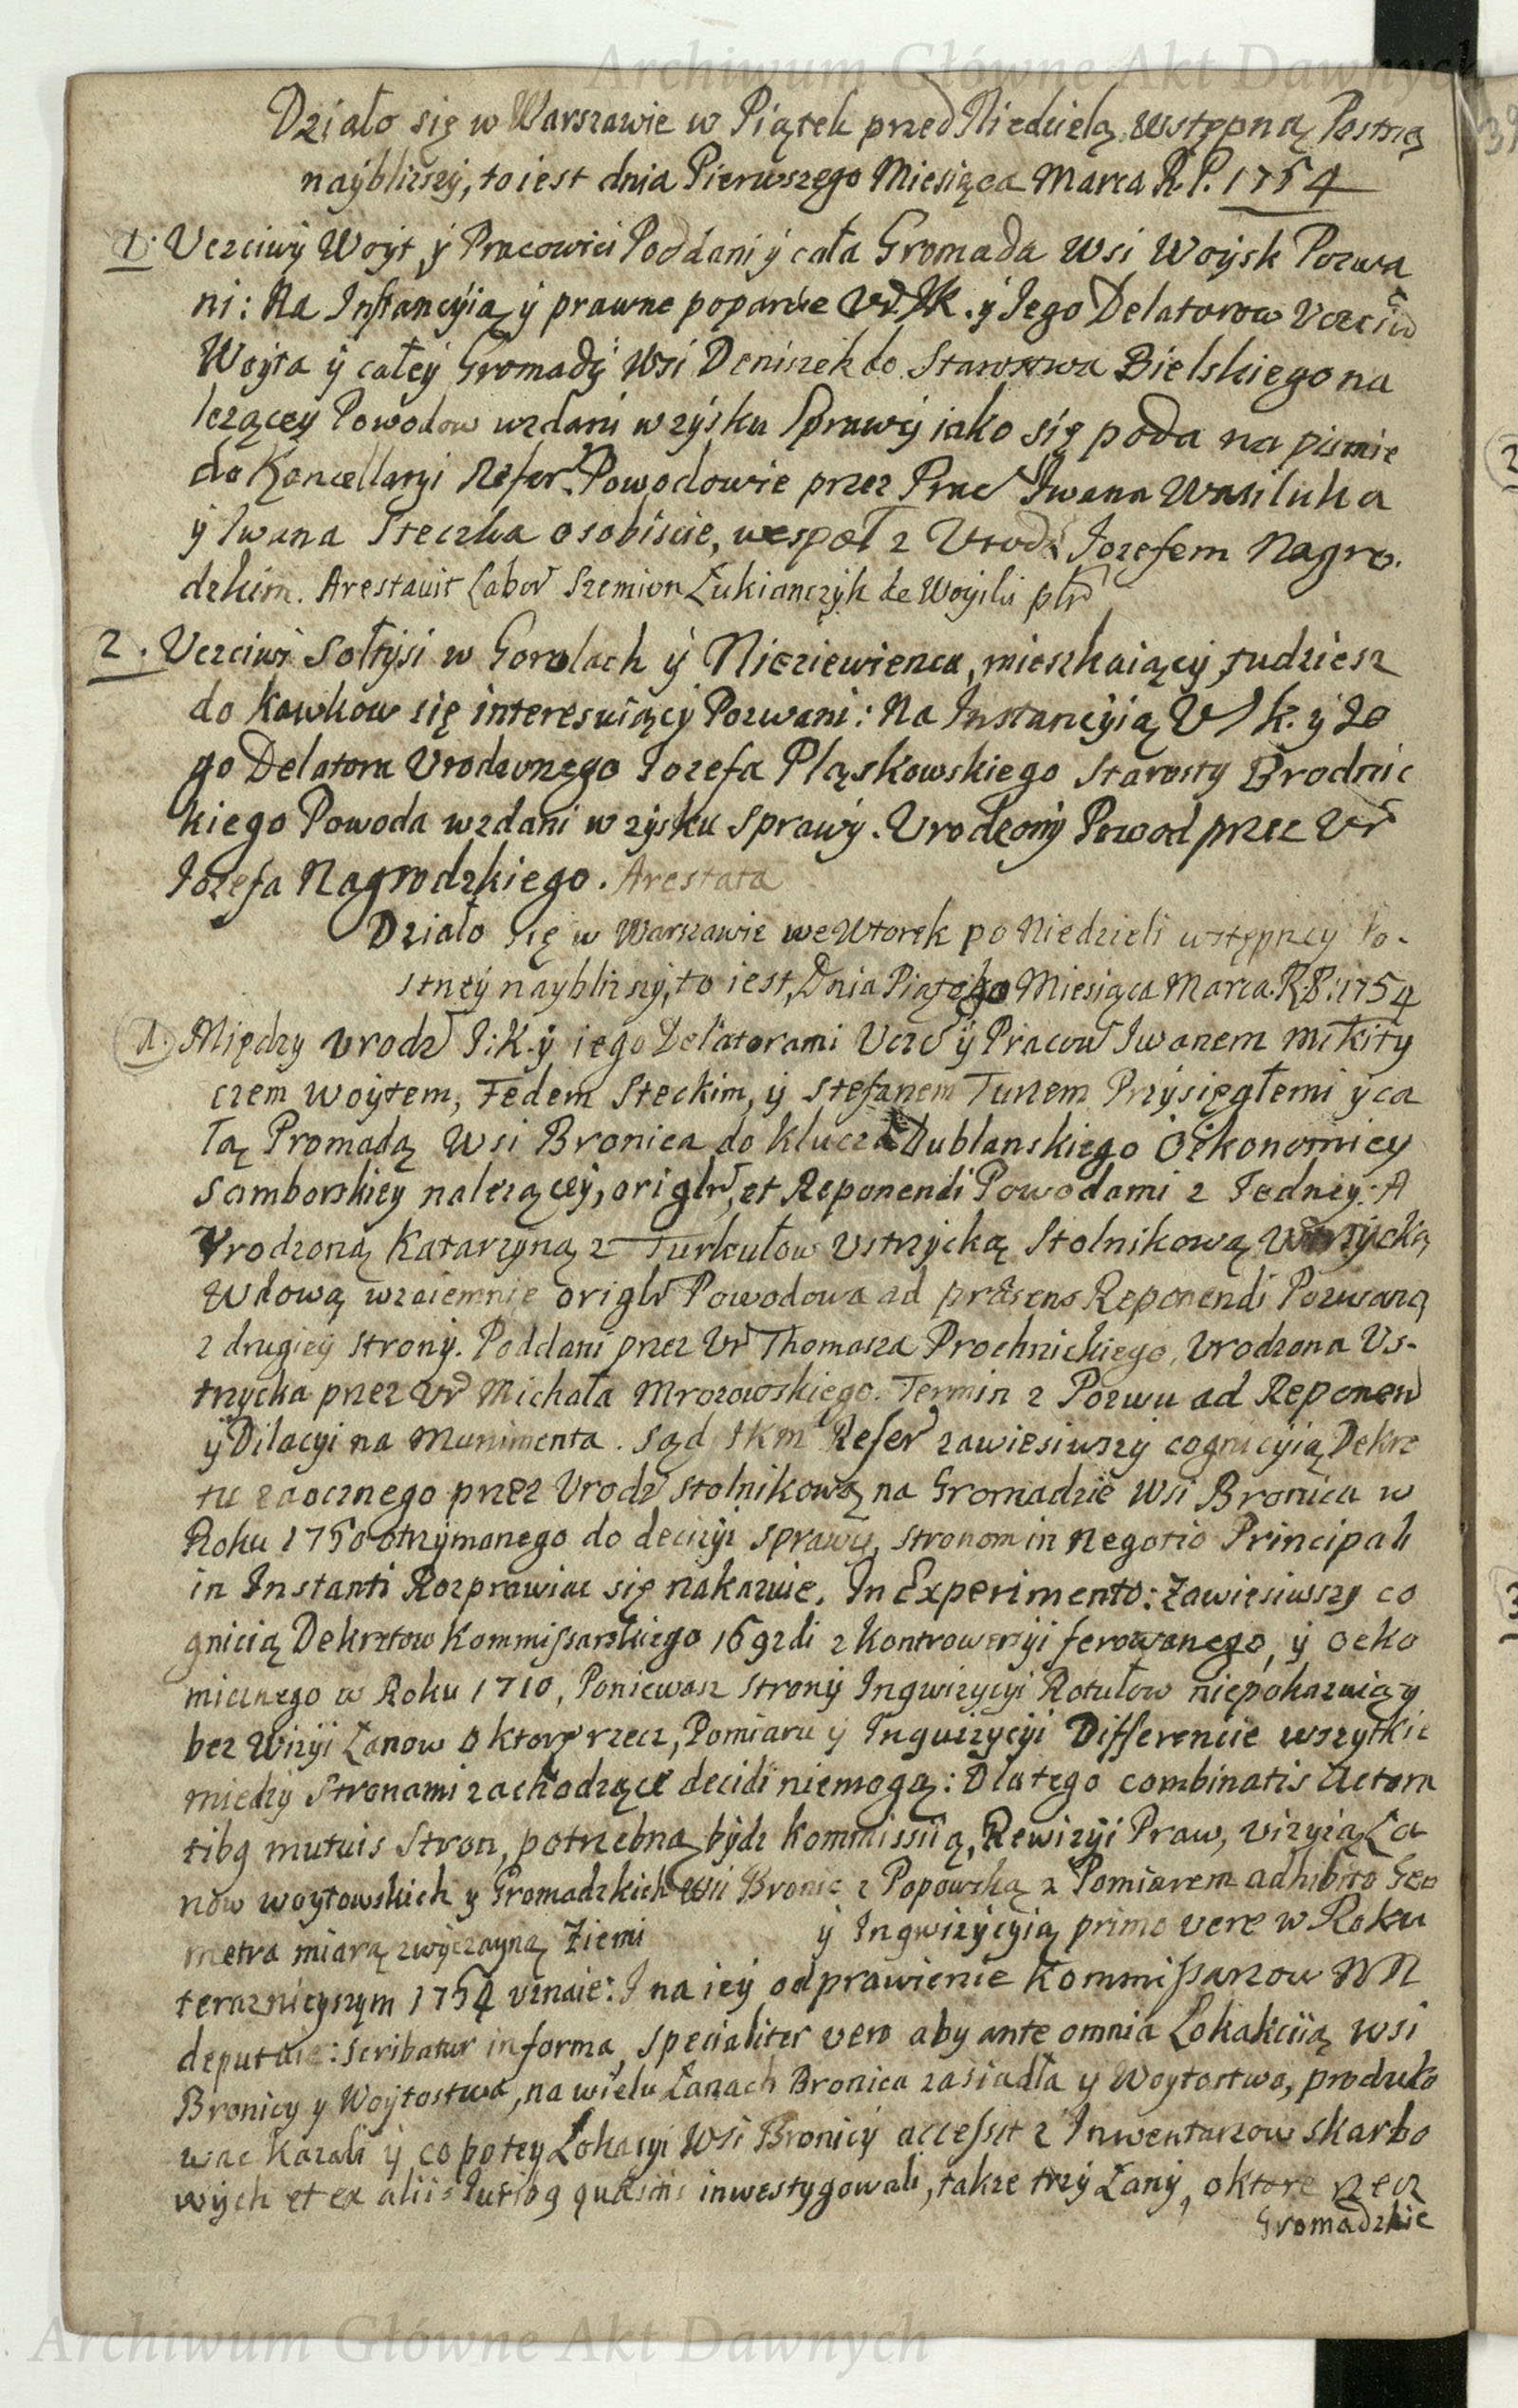 Archiwum Główne Akt Dawnych
Działo się w Warszawie w Piątek przed Niedzielą Wstępną Postną
naybliższy, to iest dnia Pierwszego Miesiąca Marca R.P. 1754
1. Uczciwy Woyt, y Pracowici Poddani y cała Gromada Wsi Woysk Pozwa
ni: Na Instancyią y prawne poparcie y Jego Delatorow Uczciw
Woyta y całey Gromady Wsi Deniszek do Starostwa Bielskiego na
lezącey Powodow wzdani w zysku Sprawy iako się poda na pismie
do Kancellaryi Refer. Powodowie przez Prac Iwana Wasiluka
y Iwana Steczka osobiscie, wespoł z Urodz Jozefem Nagro.
dzkim. Arestavit Labor Szemion Łukianczyk de Woyili
2. Uczciwi Sołtysi w Goralach y Nieziewienca, mieszkaiący, tudziesz
do Kawkow się interesuiący Pozwani: Na Instancyią y Je
go Delatora Urodzonego Jozefa Pląskowskiego Starosty Brodnic
kiego Powoda wzdani w zysku Sprawy. Urodzony Powod przez Ur
Jozefa Nagrodzkiego. Arestata
Działo się w Warszawie we Wtorek po Niedzieli wstępney Po-
stney naybliższy, to iest, Dnia Piątego Miesiąca Marca. R.P. 1754
1. Między Urodz I:K. y iego Delatorami Ucz y Pracow Iwanem Mikity
czem Woytem, Fedem Steckim, y Stefanem Turzem Przysięgłemi y ca
łą Gromadą Wsi Bronica do klucza Dublanskiego Oekonomiey
Samborskiey nalezącey, origlr, et Reponendi Powodami z Jedney: A
Urodzoną Katarzyną z Turkułow Ustrzycką Stolnikową
Wdową wzaiemnie origlr Powodowa ad præsens Reponendi Pozwaną
z drugiey strony. Poddani przez Ur Thomasza Prochnickiego, Urodzona Us-
trzycka przez Ur Michała Mrozowskiego. Termin z Pozwu ad Reponen
y Dilacyi na Munimenta. Sąd JKM Refer zawiesiwszy cognicyią Dekre
tu zaocznego przez Urodz Stolnikową na Gromadzie Wsi Bronica w
Roku 1750 otrzymanego do decizyi sprawy, stronom in Negotio Principali
in Instanti Rozprawiac się nakazuie. In Experimento: Zawiesiwszy co
gnicią Dekretow Kommissarskiego 1692di z kontrowersyi ferowanego, y oeko
miczneg w Roku 1710, Poniewasz strony Inqwizycyi Rotułow niepokazuią y
bez Wizyi Łanow o ktore rzecz, Pomiaru y Inqwizycyi Differencie wszytkie
miedzy Stronami zachodzące decidi niemogą: Dlatego combinatis Actora
tibg mutuis Stron, potrzebną bydz Kommissiią, Rewizyi Praw, vizyią Ła
now woytowskich y Gromadzkich Wsi Bronic z Popowską z Pomiarem adhibito Geo
metra miarą zwyczayną Ziemi y Inqwizycyią primo vere w Roku
terazneyszym 1754 uznaie: I na iey odprawienie Kommissarzow NN
deputuie: scribatur in forma, specialiter vero aby ante omnia Lokakciią Wsi
Bronicy y Woytostwa, na wielu Łanach Bronica zasiadła y Woytostwo, produko
wac kazali y co potey Lokacyi Wsi Bronicy accessit z Inwentarzow skarbo
wych et ex aliis Juribg quæsitis inwestygowali, także trzy Łany, o ktore rzecz
Gromadzkie
Archiwum Główne Akt Dawnych